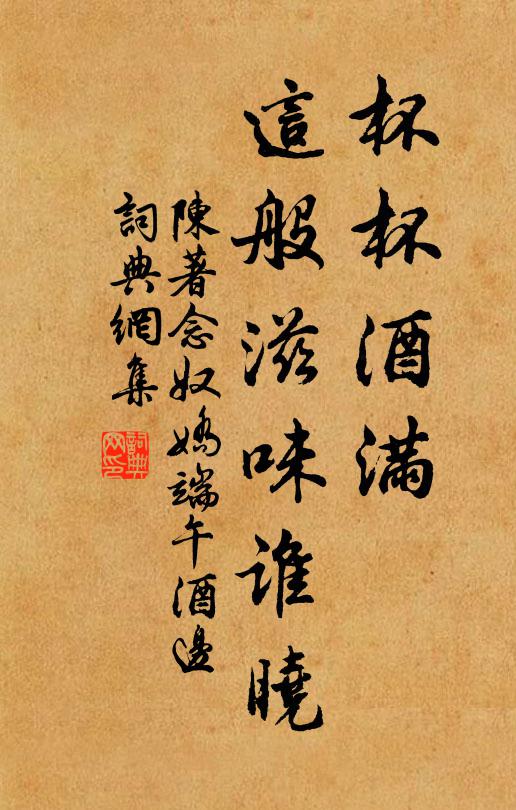 杯杯酒滿
這般滋味誰曉
陳著念奴嬌端午酒邊
詞典網集
詞典网印